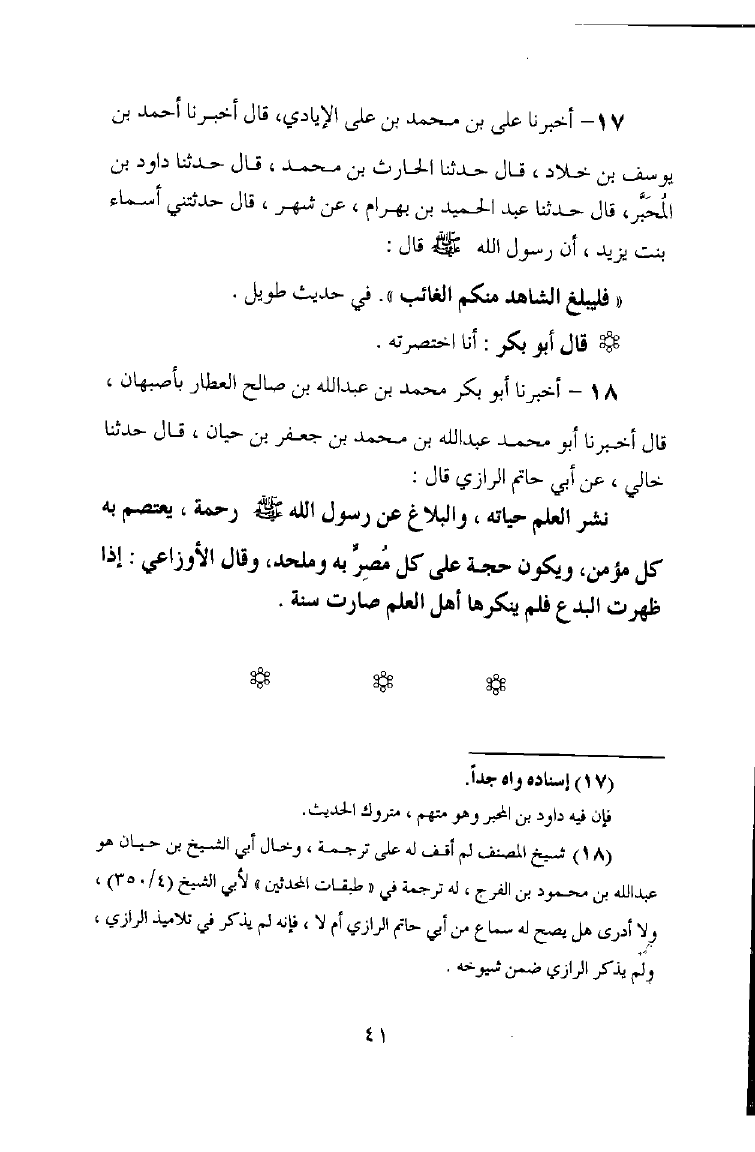 ١٧- أخبرنا على بن محمد بن على الإيادي، قال أخبرنا أحمد بن
يوسف بن خلاد ، قال حدثنا الحارث بن محمد ، قال حدثنا داود بن
المُحَبَّر، قال حدثنا عبد الحميد بن بهرام ، عن شهر ، قال حدثتني أسماء
بنت يزيد ، أن رسول الله ﷺ قال :
« فليبلغ الشاهد منكم الغائب ». في حديث طويل .
۞ قال أبو بكر : أنا اختصرته .
١٨ - أخبرنا أبو بكر محمد بن عبدالله بن صالح العطار بأصبهان ،
قال أخبرنا أبو محمد عبدالله بن محمد بن جعفر بن حيان ، قال حدثنا
خالي ، عن أبي حاتم الرازي قال :
نشر العلم حياته ، والبلاغ عن رسول الله ﷺ رحمة ، يعتصم به
كل مؤمن، ويكون حجة على كل مُصِرٍّ به وملحد، وقال الأوزاعي : إذا
ظهرت البدع فلم ينكرها أهل العلم صارت سنة .
۞ ۞ ۞
(١٧) إسناده واه جداً.
فإن فيه داود بن المحبر وهو متهم ، متروك الحديث.
(١٨) شيخ المصنف لم أقف له على ترجمة ، وخال أبي الشيخ بن حيان هو
عبدالله بن محمود بن الفرج ، له ترجمة في « طبقات المحدثين » لأبي الشيخ (٣٥٠/٤) ،
ولا أدرى هل يصح له سماع من أبي حاتم الرازي أم لا ، فإنه لم يذكر في تلاميذ الرازي ،
ولم يذكر الرازي ضمن شيوخه .
٤١